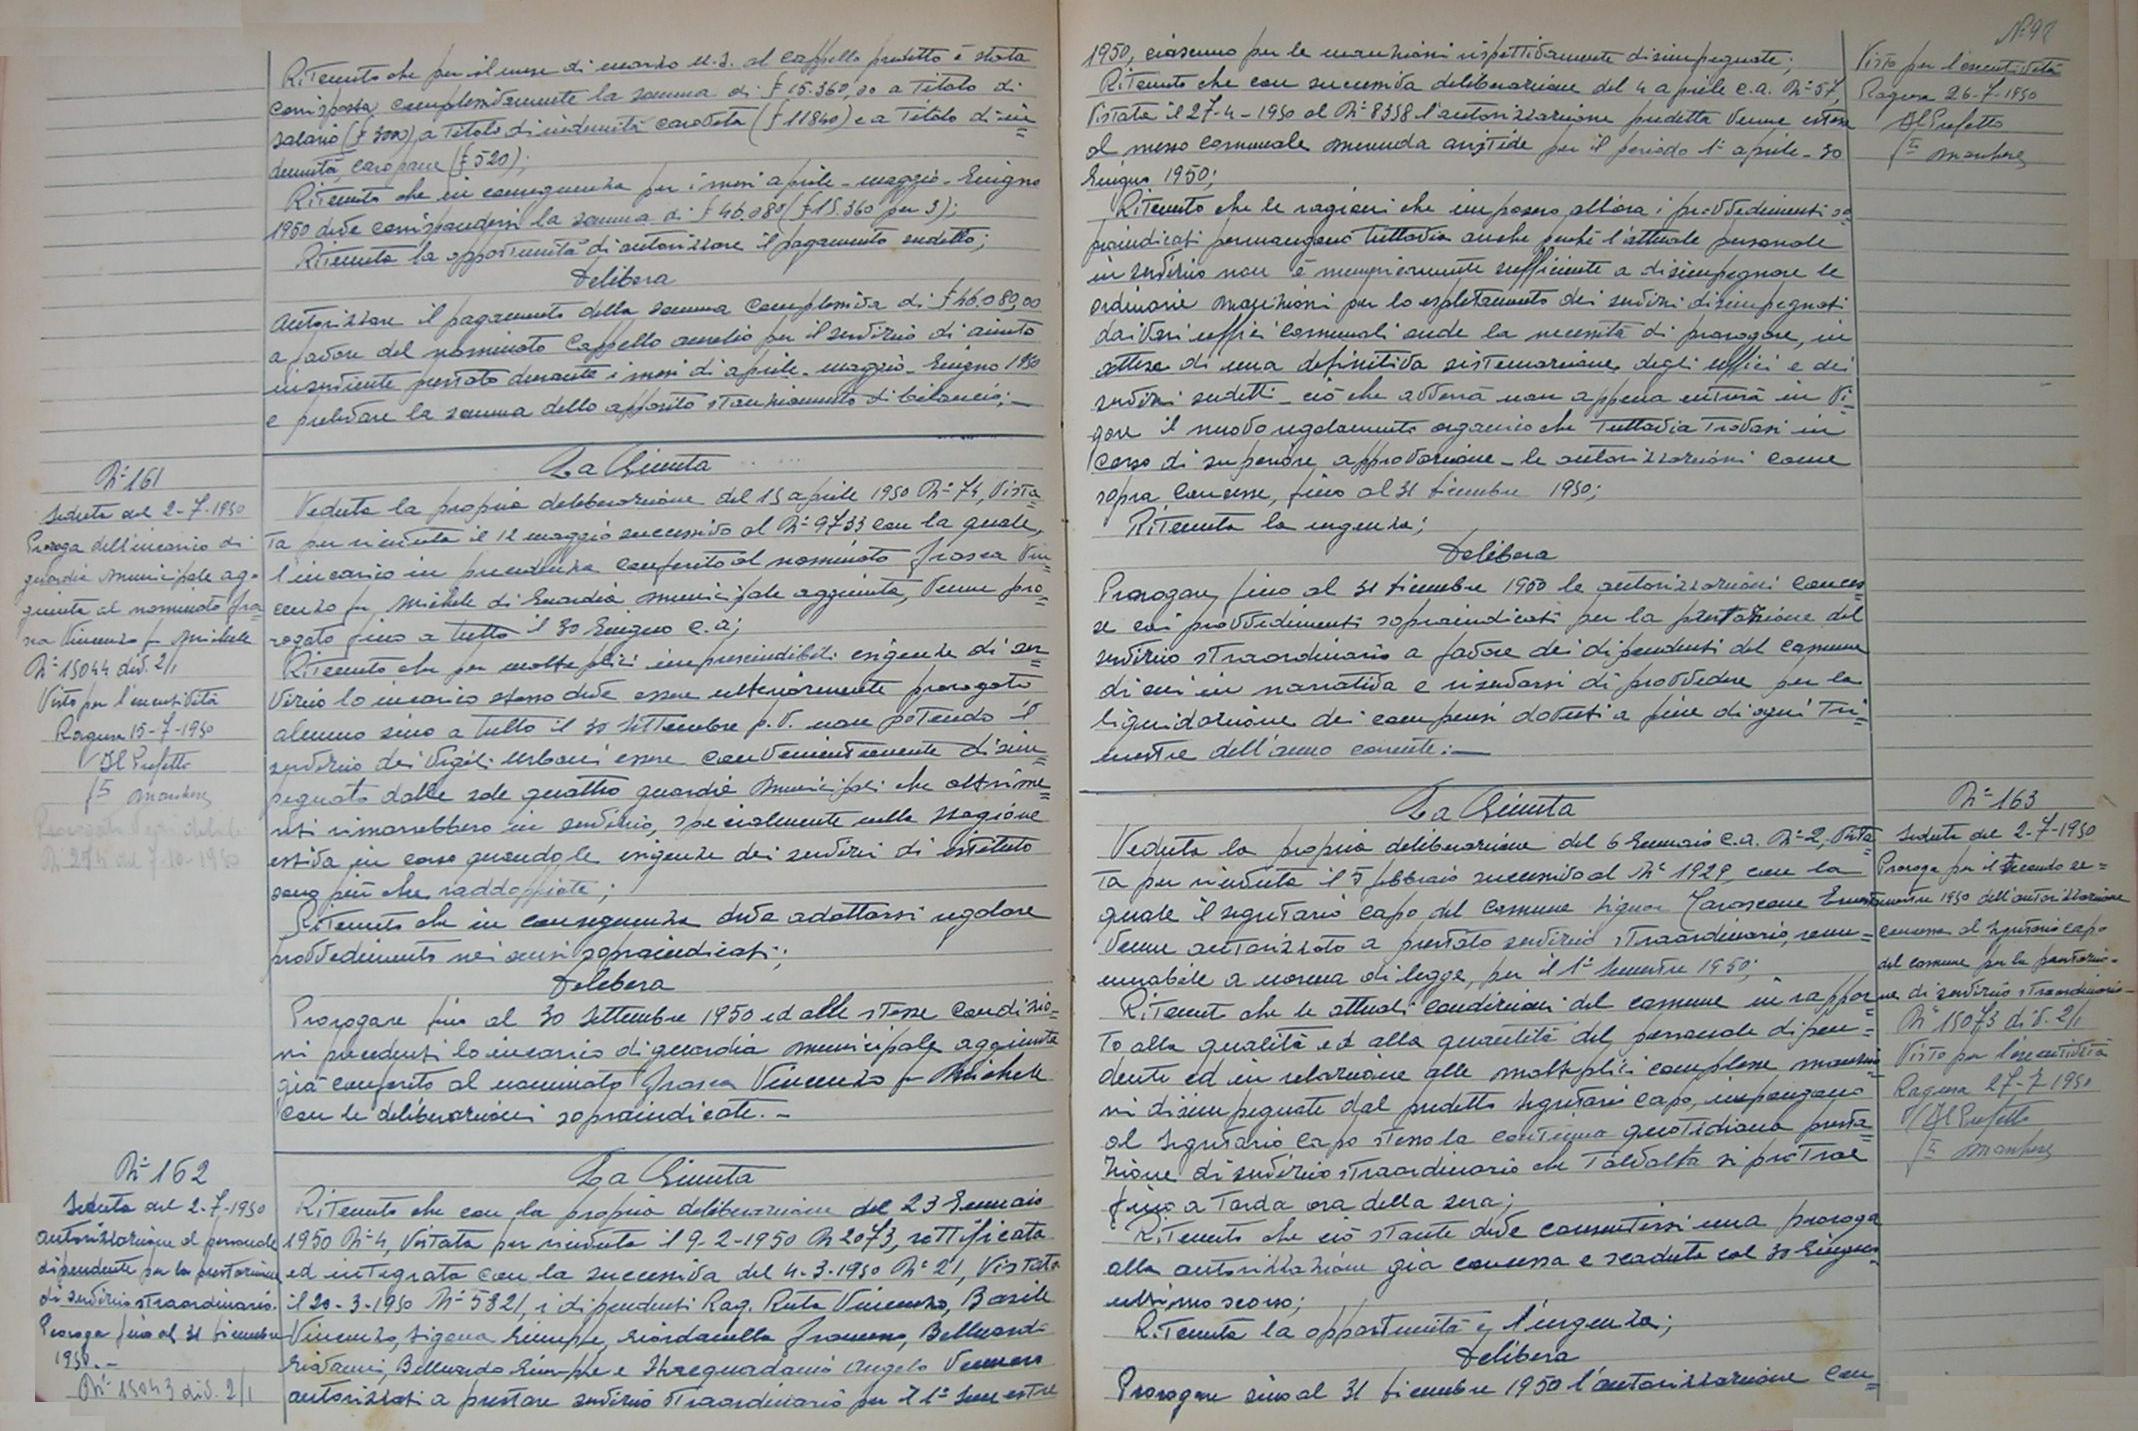 Ritenuto che per il mese di marzo u.s. al Cappello predetto è stata
corrisposta complessivamente la somma di £ 15.360,00 a titolo di
salario (£ 3000) a titolo di indennità carovita (£ 11840) e a titolo di in=
dennità caropane (£ 520);
Ritenuto che in conseguenza per i mesi aprile - maggio - Giugno
1950 deve corrispondersi la somma di £ 46.080 (£ 15.360 per 3);
Ritenuta la opportunità di autorizzare il pagamento sudetto;
Delibera
Autorizzare il pagamento della somma complessiva di £ 46.080,00
a favore del nominato Cappello Aurelio per il servizio di aiuto
inserviente prestato durante i mesi di aprile - maggio - Giugno 1950
e prelevare la somma dallo apposito stanziamento di bilancio; —
N° 161
Seduta del 2-7-1950
Proroga dell'incarico di
guardia municipale ag=
giunta al nominato Fra
sca Vincenzo fu Michele
N° 15044 div. 2/1
Visto per l'esecutività
Ragusa 15-7-1950
Il Prefetto
La Giunta
Veduta la propria deliberazione del 15 aprile 1950 N° 74, vista=
ta per ricevuta il 12 maggio successivo al N° 9733 con la quale,
l'incarico in precedenza conferito al nominato Frasca Vin=
cenzo fu Michele di Guardia municipale aggiunta, venne pro=
rogato fino a tutto il 30 Giugno c.a;
Ritenuto che per molteplici imprescindibili esigenze di ser=
vizio lo incarico stesso deve essere ulteriormente prorogato
almeno sino a tutto il 30 Settembre p.v. non potendo il
servizio dei Vigili Urbani essere convenientemente disim=
pegnato dalle sole quattro guardie municipali che altrime=
nti rimarrebbero in servizio, specialmente nella stagione
estiva in corso quando le esigenze dei servizi di istituto
sono più che raddoppiate;
Ritenuto che in conseguenza deve adottarsi regolare
provvedimento nei sensi sopraindicati;
Delibera
Prorogare fino al 30 Settembre 1950 ed alle stesse condizio=
ni precedenti lo incarico di guardia municipale aggiunta
già conferito al nominato Frasca Vincenzo fu Michele
con le deliberazioni sopraindicate. -
N° 162
Seduta del 2-7-1950
Autorizzazione al personale
dipendente per la prestazione
di servizio straordinario.
Proroga fino al 31 Dicembre
1950. -
N° 15043 div. 2/1
La Giunta
Ritenuto che con la propria deliberazione del 23 Gennaio
1950 N° 4, vistata per ricevuta il 9-2-1950 N 2073, rettificata
ed integrata con la successiva del 4-3-1950 N° 21, vistata
il 20-3-1950 N° 5821, i dipendenti Rag. Ruta Vincenzo, Basile
Vincenzo, Sigona Giuseppe, Giordanella Francesco, Belluardo
Giovanni, Belluardo Giuseppe e Angelo vennero
autorizzati a prestare servizio straordinario per il 1° Semestre
N° 92
1950, ciascuno per le mansioni rispettivamente disimpegnate;
Ritenuto che con successiva deliberazione del 4 aprile c.a. N° 57,
vistata il 27-4-1950 al N° 8358 l'autorizzazione predetta venne estesa
al messo comunale Aristide per il periodo 1° aprile - 30
Giugno 1950;
Ritenuto che le ragioni che imposero allora i provvedimenti so=
praindicati permangono tuttavia anche perché l'attuale personale
in servizio non è sufficiente a disimpegnare le
ordinarie mansioni per lo espletamento dei servizi disimpegnati
dai vari uffici comunali onde la necessità di prorogare, in
attesa di una definitiva sistemazione degli uffici e dei
servizi sudetti - ciò che avverrà non appena entrerà in vi=
gore il nuovo regolamento organico che tuttavia trovasi in
corso di superiore approvazione - le autorizzazioni come
sopra concesse, fino al 31 Dicembre 1950;
Ritenuta la urgenza;
Delibera
Prorogare fino al 31 Dicembre 1950 le autorizzazioni conces
se coi provvedimenti sopraindicati per la prestazione del
servizio straordinario a favore dei dipendenti del comune
di cui in narrativa e riservarsi di provvedere per la
liquidazione dei compensi dovuti a fine di ogni tri=
mestre dell'anno corrente. —
Visto per l'esecutività
Ragusa 26-7-1950
Il Prefetto
La Giunta
Veduta la propria deliberazione del 6 Gennaio c.a. N° 2, vista=
ta per ricevuta il 5 febbraio successivo al N° 1929, con la
quale il segretario capo del comune signor
venne autorizzato a prestato servizio straordinario, remu=
nerabile a norma di legge, per il 1° Semestre 1950;
Ritenuto che le attuali condizioni del comune in rappor
to alla qualità ed alla quantità del personale dipen=
dente ed in relazione alle molteplici complesse mansio
ni disimpegnate dal predetto segretario capo, impongano
al Segretario Capo stesso la continua quotidiana presta=
zione di servizio straordinario che talvolta si protrae
fino a tarda ora della sera;
Ritenuto che ciò stante deve consentirsi una proroga
alla autorizzazione già concessa e scaduta col 30 Giugno
ultimo scorso;
Ritenuta la opportunità e l'urgenza;
Delibera
Prorogare sino al 31 Dicembre 1950 l'autorizzazione con=
N° 163
Seduta del 2-7-1950
Proroga per il secondo se=
mestre 1950 dell'autorizzazione
concessa al Segretario capo
del comune per la prestazio=
ne di servizio straordinario
N° 15073 div. 2/1
Visto per l'esecutività
Ragusa 27-7-1950
Il Prefetto